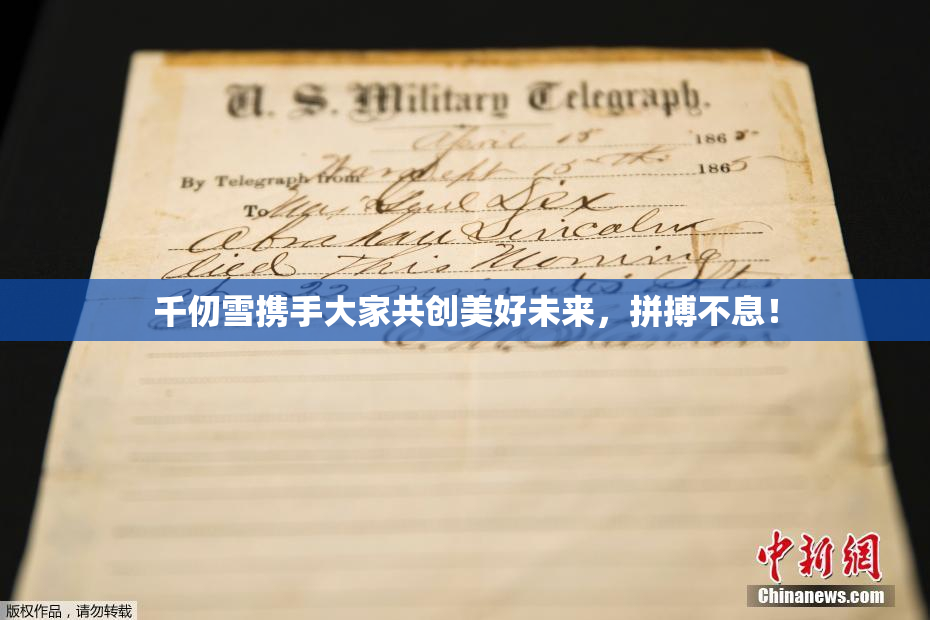 U. S. Military Telegraph.
April 15 1865
By Telegraph from War Dept 15th 1865
To Maj Genl Dix
Abraham Lincoln
died This Morning
at 22 minutes after
千仞雪携手大家共创美好未来，拼搏不息！
E. M. Stanton
中新網
Chinanews.com
版权作品，请勿转载